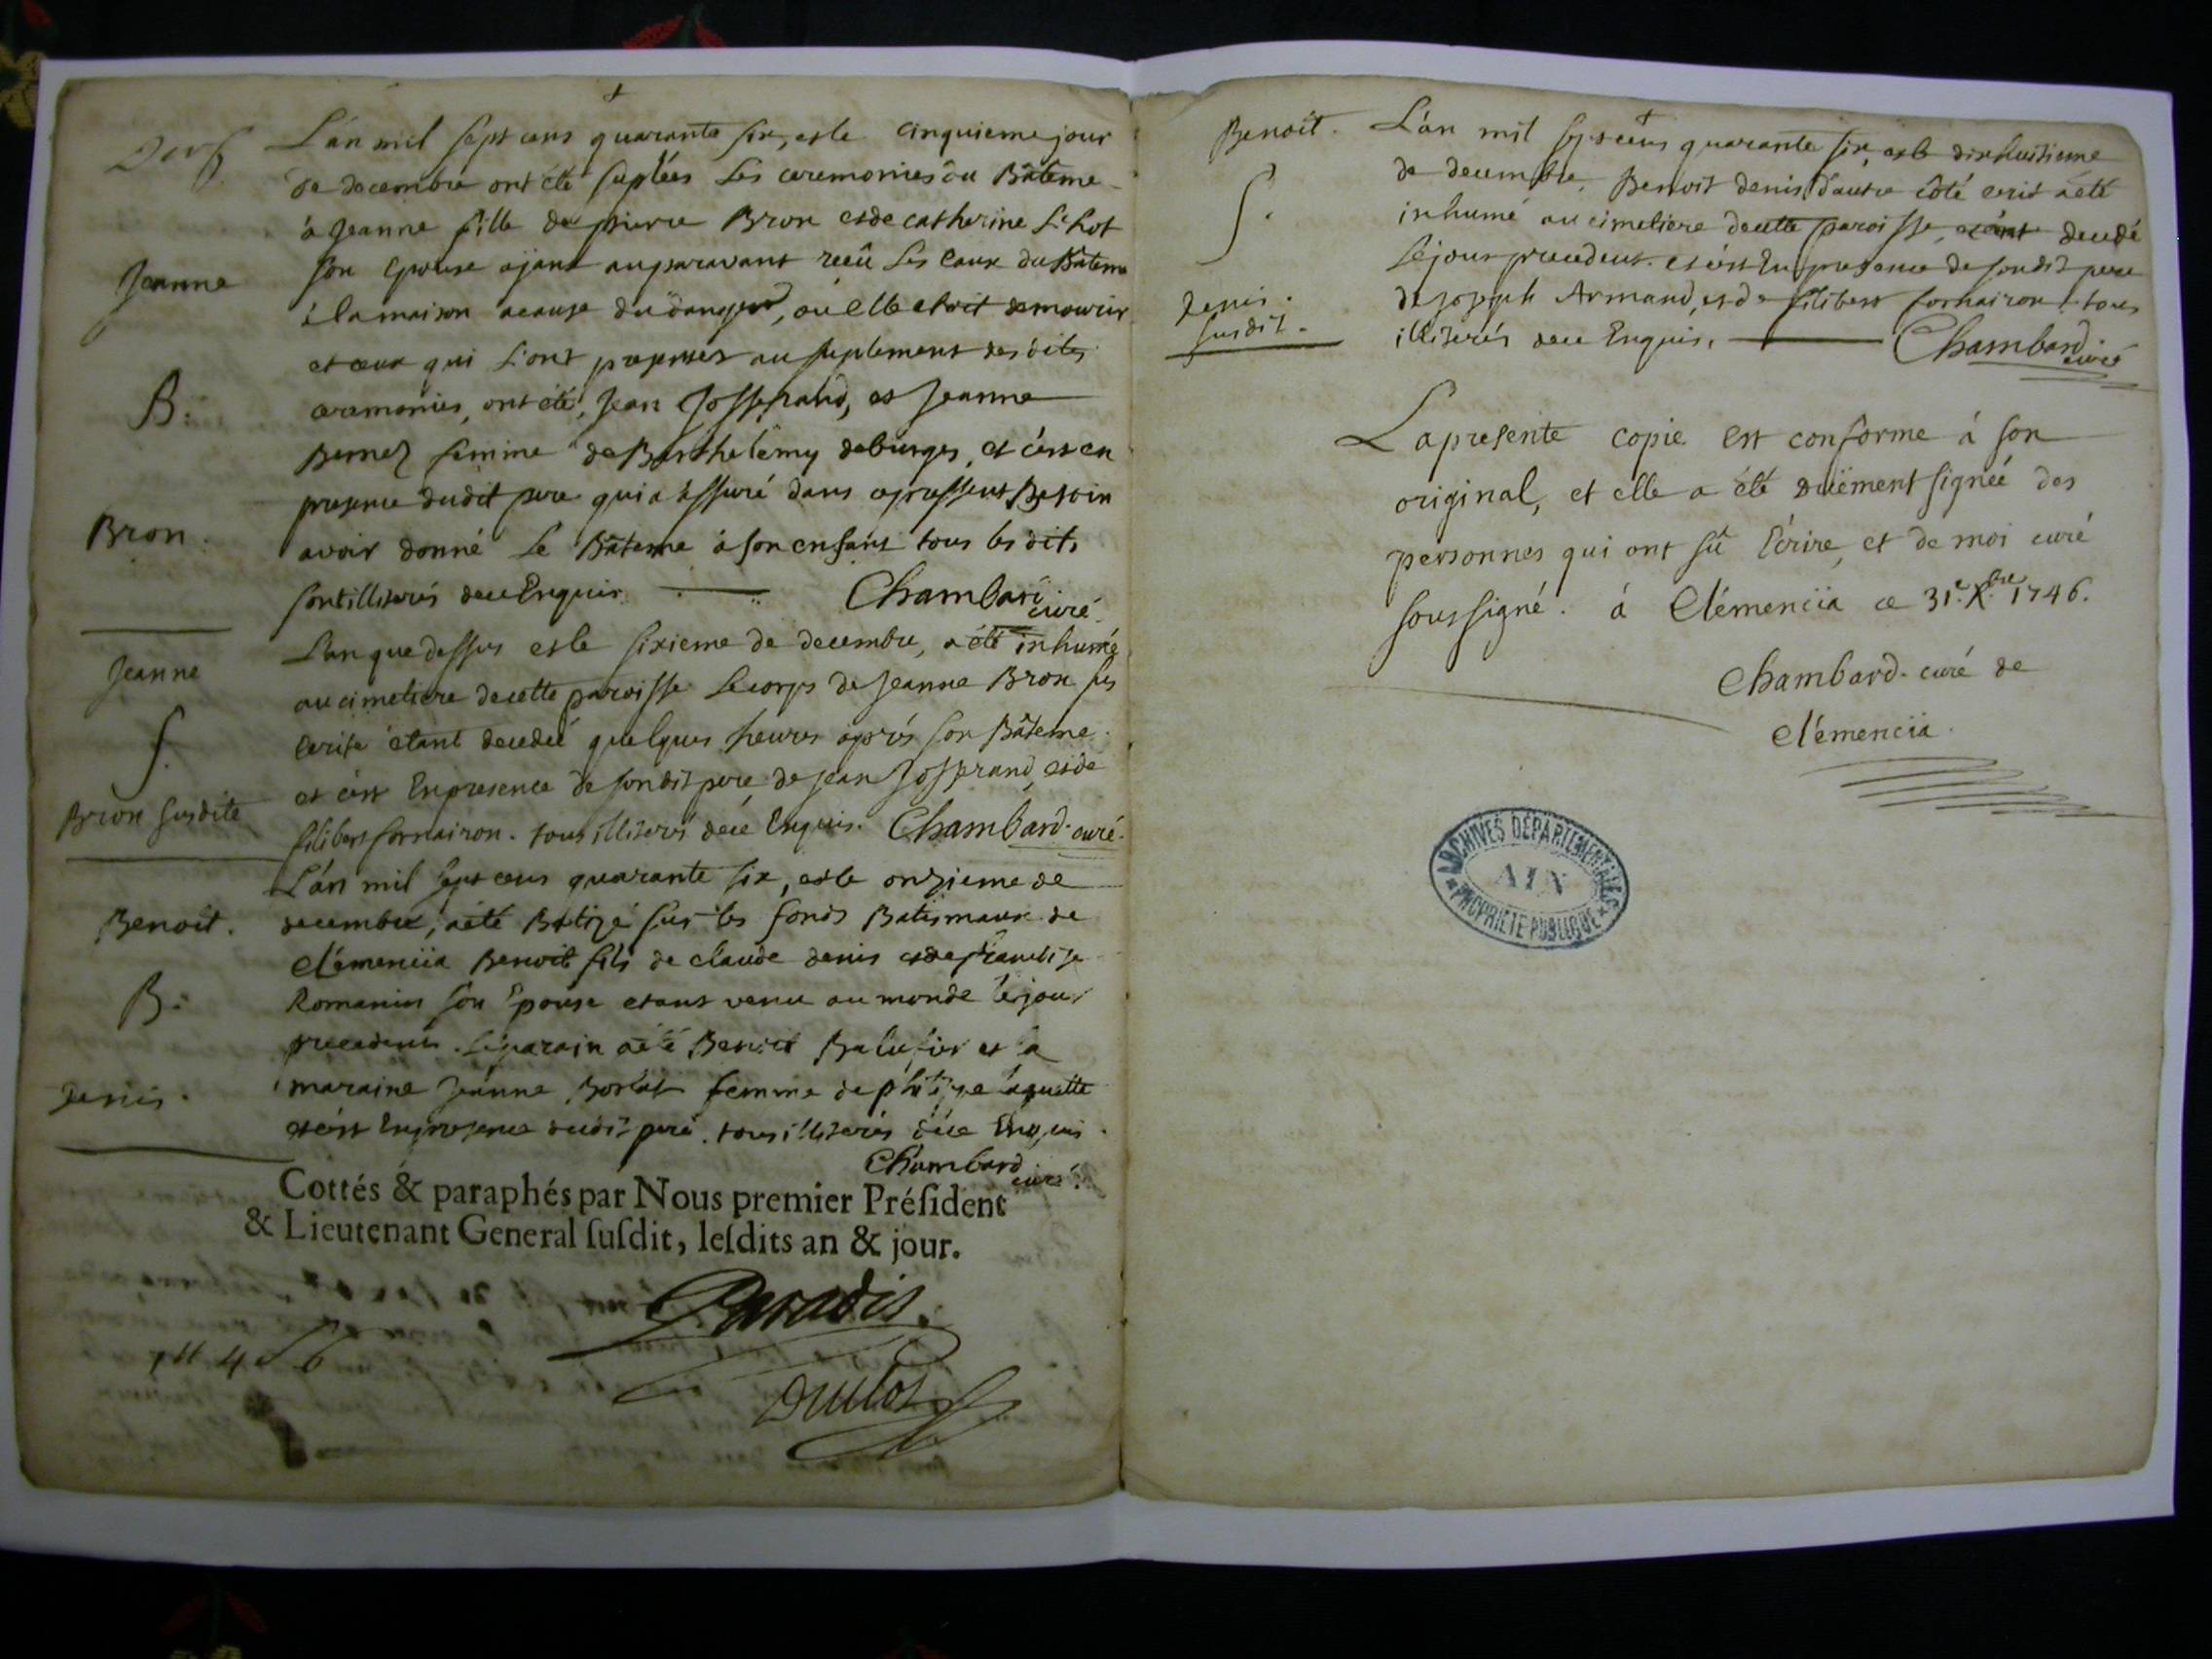 Jeanne
B.
Bron.
L'an mil sept cens quarante six, et le cinquieme jour
de decembre ont été suplées les ceremonies du Bâteme
à Jeanne fille de pierre Bron et de catherine
son Epouse ajant auparavant reçû les eaux du Bâteme
à la maison acause du danger, où elle etoit de mourir
et ceux qui l'ont presentée au suplement des dites
ceremonies, ont été, Jean Josserand, et Jeanne
femme de Barthelemy deburges, et c'est en
presence dudit pere qui a assuré dans ce pressent Besoin
avoir donné le Bâteme à son enfant tous les dits
sont illiterés de ce Enquis. Chambard curé.
Jeanne
S.
Bron susdite
L'an que dessus et le sixieme de decembre, a été inhumé
au cimetiere de cette paroisse le corps de Jeanne Bron sus
Ecrite étant decedée quelques heures aprés son Bâteme.
et c'est En presence de son dit pere, de Jean Josserand, et de
filibert fornairon. tous illiterés de ce Enquis. Chambard. curé.
Benoit.
B.
Denis.
L'an mil sept cens quarante six, et le onzieme de
decembre, a été Batizé sur les fonds Batismaux de
Clémencia Benoit fils de claude denis et de francoise
Romanin son Epouse etant venu au monde le jour
precedent. Le parain a été Benoit et la
maraine Jeanne femme de
et c'est En presence dudit pere. tous illiterés de ce Enquis.
Chambard
curé.
Cottés & paraphés par Nous premier Préſident
& Lieutenant General ſuſdit, leſdits an & jour.
Paradis.
Benoit.
S.
Denis.
susdit.
L'an mil sept cens quarante six, et le dixhuitieme
de decembre, Benoit denis d'autre côté ecrit a été
inhumé au cimetiere de cette paroisse, etant decedé
le jour precedent. et c'est En presence de son dit pere
de Joseph Armand, et de filibert fornairon. tous
illiterés de ce Enquis. Chambard curé
La presente copie est conforme à son
original, et elle a été duëment signée des
personnes qui ont sû Ecrire, et de moi curé
soussigné. à Clémencia ce 31e. Xbre 1746.
Chambard. curé de
Clémencia.
ARCHIVES DÉPARTEMENTALES
AIN
PROPRIÉTÉ PUBLIQUE